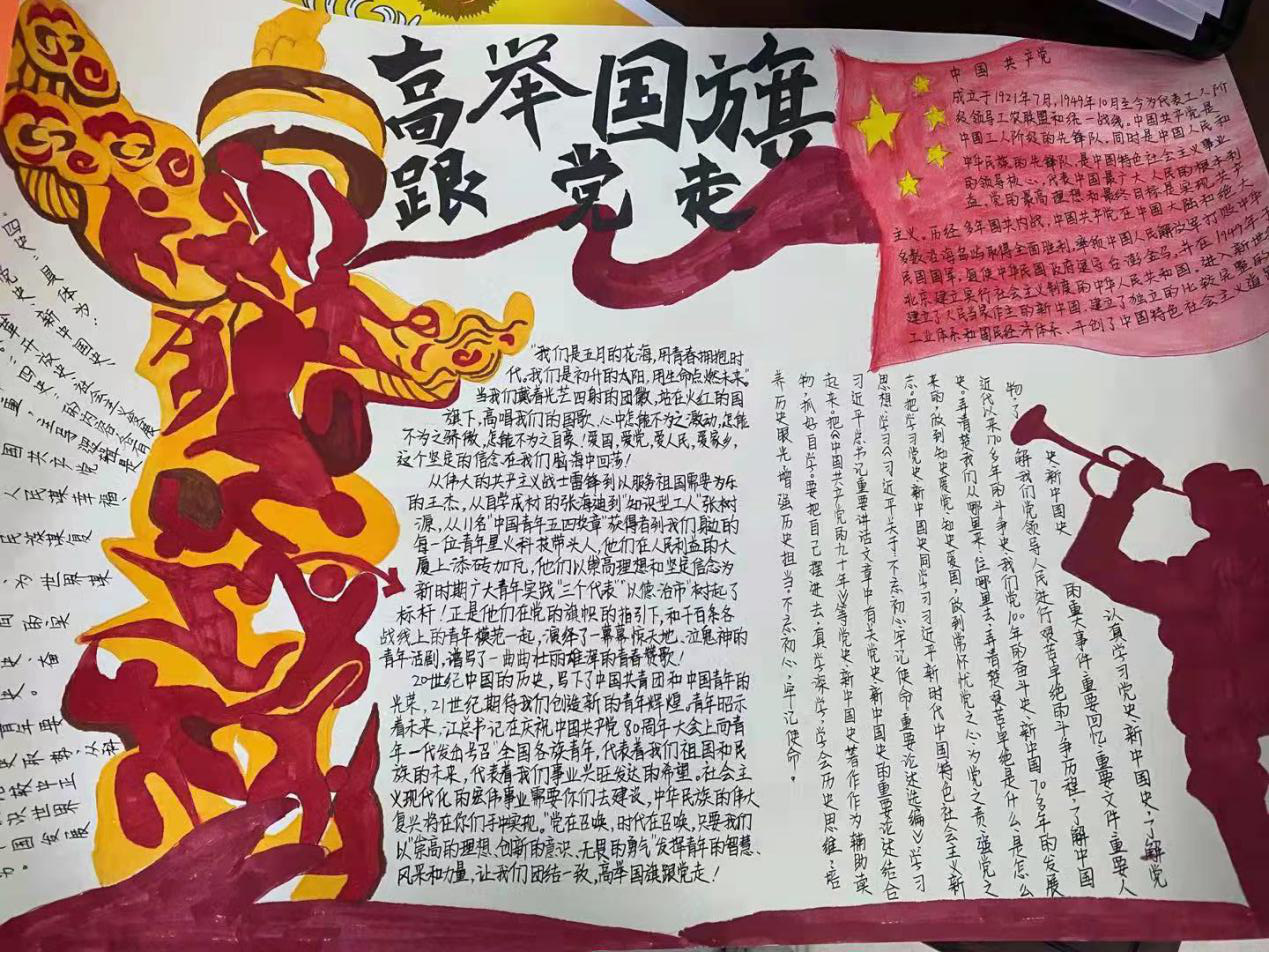 高举国旗
跟党走
中国共产党
成立于1921年7月,1949年10月至今为代表工人阶
级领导工农联盟和统一战线。中国共产党是
中国工人阶级的先锋队,同时是中国人民和
中华民族的先锋队,是中国特色社会主义事业
的领导核心,代表中国最广大人民的根本利
益。党的最高理想和最终目标是实现共产
主义。历经多年国共内战,中国共产党在中国大陆和绝大
多数沿海岛屿取得全面胜利,率领中国人民解放军打败中华
民国国军,迫使中华民国政府退守台澎金马,并在1949年于
北京建立实行社会主义制度的中华人民共和国。进入新世
建立了人民当家作主的新中国,建立了独立的比较完整的
工业体系和国民经济体系,开创了中国特色社会主义道
"四史"具体为:
党史、新中国史
改革开放史、社会主义发展
"四史"的内容各有
重,主线
国共产党
人民谋幸福、
民族谋复
、为世界谋
同的实
史、奋
史。
"我们是五月的花海,用青春拥抱时
代。我们是初升的太阳,用生命点燃未来"
当我们戴着光芒四射的团徽,站在火红的国
旗下,高唱我们的国歌,心中怎能不为之激动,怎能
不为之骄傲,怎能不为之自豪!爱国,爱党,爱人民,爱家乡,
这个坚定的信念在我们脑海中回荡!
从伟大的共产主义战士雷锋到以服务祖国需要为乐
的王杰,从自学成材的张海迪到"知识型工人"张树
源,从11名"中国青年五四奖章"获得者到我们身边的
每一位青年星火科技带头人,他们在人民利益的大
厦上添砖加瓦,他们以崇高理想和坚定信念为
新时期广大青年实践"三个代表""以德治市"树起了
标杆!正是他们在党的旗帜的指引下,和千百条各
战线上的青年模范一起,演绎了一幕幕惊天地、泣鬼神的
青年活剧,谱写了一曲曲壮丽雄浑的青春赞歌!
20世纪中国的历史,写下了中国共青团和中国青年的
光荣,21世纪期待我们创造新的青年辉煌。青年昭示
着未来,江总书记在庆祝中国共产党80周年大会上向青
年一代发出号召"全国各族青年,代表着我们祖国和民
族的未来,代表着我们事业兴旺发达的希望。社会主
义现代化的宏伟事业需要你们去建设,中华民族的伟大
复兴将在你们手中实现。"党在召唤,时代在召唤,只要我们
以"崇高的理想、创新的意识、无畏的勇气"发挥青年的智慧、
风采和力量,让我们团结一致,高举国旗跟党走!
认真学习党史、新中国史,了解党
史、新中国史的重大事件、重要回忆、重要文件、重要人
物,了解我们党领导人民进行艰苦卓绝的斗争历程,了解中国
近代以来170多年的斗争史、我们党100年的奋斗史、新中国70多年的发展
史。弄清楚我们从哪里来、往哪里去,弄清楚艰苦卓绝是什么、是怎么
来的,做到知史爱党、知史爱国,做到常怀忧党之心、为党之责、强党之
志。把学习党史、新中国史同学习习近平新时代中国特色社会主义
思想、学习《习近平关于"不忘初心、牢记使命"重要论述选编》、学习
习近平总书记重要讲话文章中有关党史、新中国史的重要论述结合
起来。把《中国共产党的九十年》等党史、新中国史著作作为辅助读
物,抓好自学。要把自己摆进去,真学深学,学会历史思维、培
养历史眼光、增强历史担当,不忘初心、牢记使命。